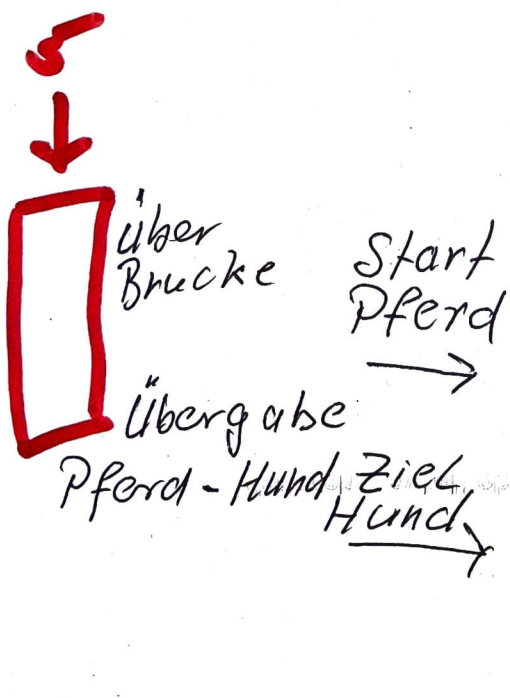 5
über
Brucke
Start
Pferd
Übergabe
Pferd - Hund
Ziel
Hund